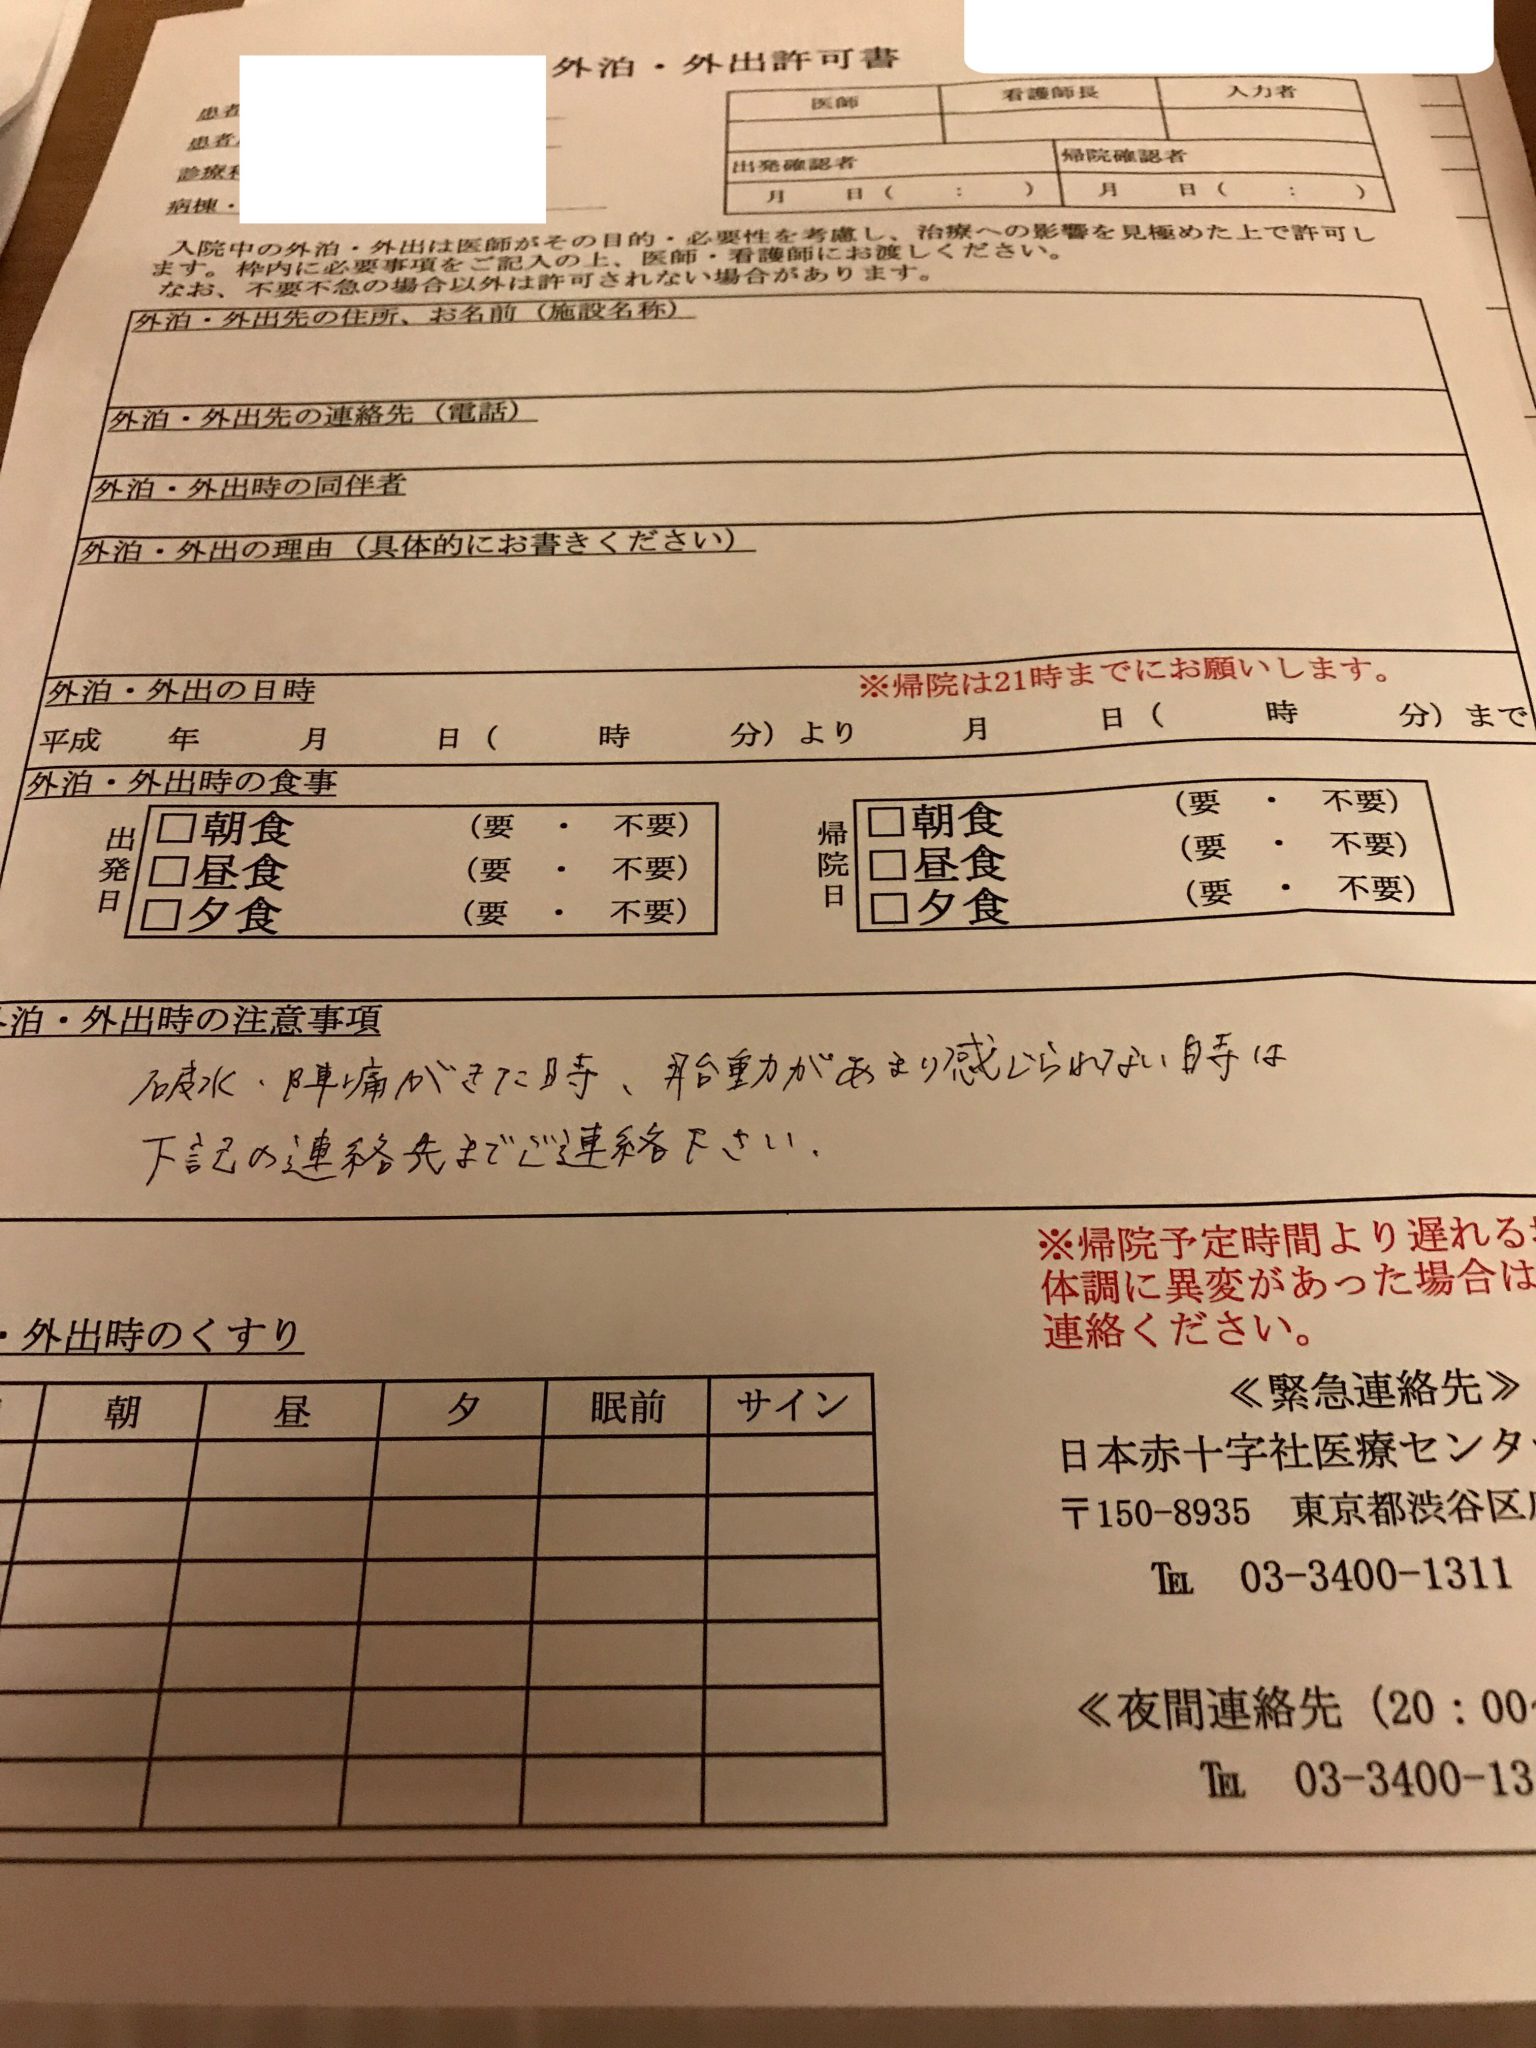 外泊・外出許可書
医師 看護師長 入力者
患者
患者
診療科
病棟・
出発確認者 帰院確認者
月 日( : ) 月 日( : )
入院中の外泊・外出は医師がその目的・必要性を考慮し、治療への影響を見極めた上で許可し
ます。枠内に必要事項をご記入の上、医師・看護師にお渡しください。
なお、不要不急の場合以外は許可されない場合があります。
外泊・外出先の住所、お名前(施設名称)
外泊・外出先の連絡先(電話)
外泊・外出時の同伴者
外泊・外出の理由(具体的にお書きください)
外泊・外出の日時 ※帰院は21時までにお願いします。
平成 年 月 日( 時 分)より 月 日( 時 分)まで
外泊・外出時の食事
出発日
□朝食 (要 ・ 不要)
□昼食 (要 ・ 不要)
□夕食 (要 ・ 不要)
帰院日
□朝食 (要 ・ 不要)
□昼食 (要 ・ 不要)
□夕食 (要 ・ 不要)
泊・外出時の注意事項
破水・陣痛がきた時、胎動があまり感じられない時は
下記の連絡先までご連絡下さい.
※帰院予定時間より遅れる
体調に異変があった場合は
連絡ください。
・外出時のくすり
朝 昼 夕 眠前 サイン
≪緊急連絡先≫
日本赤十字社医療センタ
〒150-8935 東京都渋谷区
℡ 03-3400-1311
≪夜間連絡先(20:00
℡ 03-3400-13